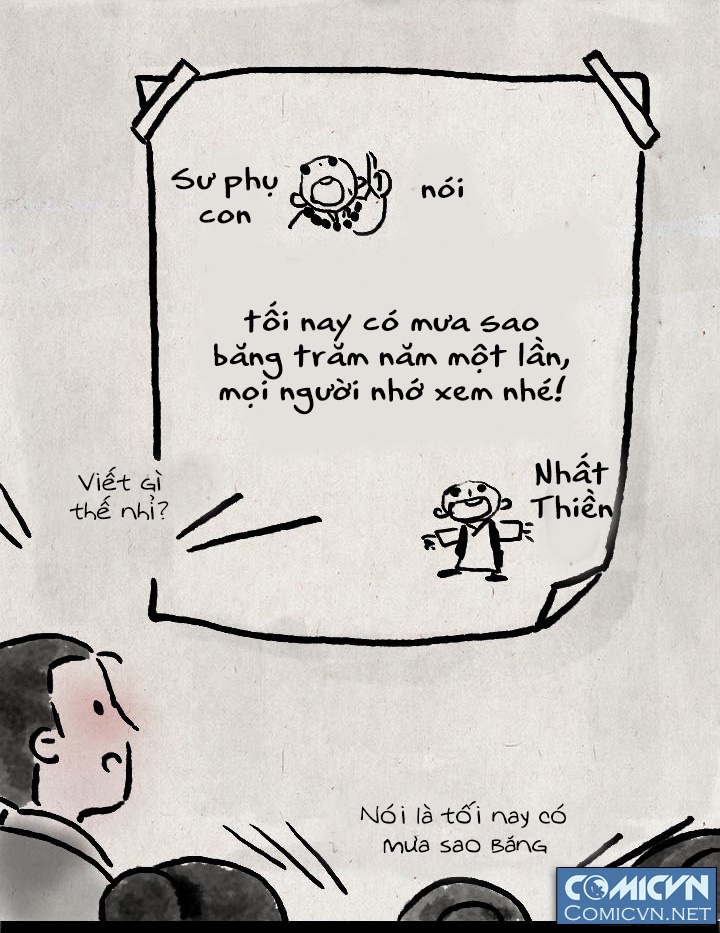 Sư phụ
con
nói
tối nay có mưa sao
băng trăm năm một lần,
mọi người nhớ xem nhé!
Nhất
Thiền
Viết gì
thế nhỉ?
Nói là tối nay có
mưa sao băng
COMICVN
COMICVN.NET